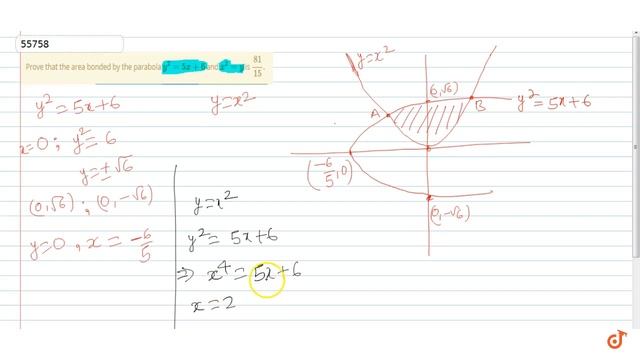 55758
Prove that the area bonded by the parabola y² = 5x + 6 and x² = y is 81/15.
y² = 5x+6
y=x²
x=0 ; y² = 6
y = ±√6
(0,√6) ; (0,-√6)
y=0 , x = -6/5
y=x²
y² = 5x+6
⇒ x⁴ = 5x+6
x=2
y=x²
(0,√6)
A
B
y² = 5x+6
(-6/5, 0)
(0,-√6)